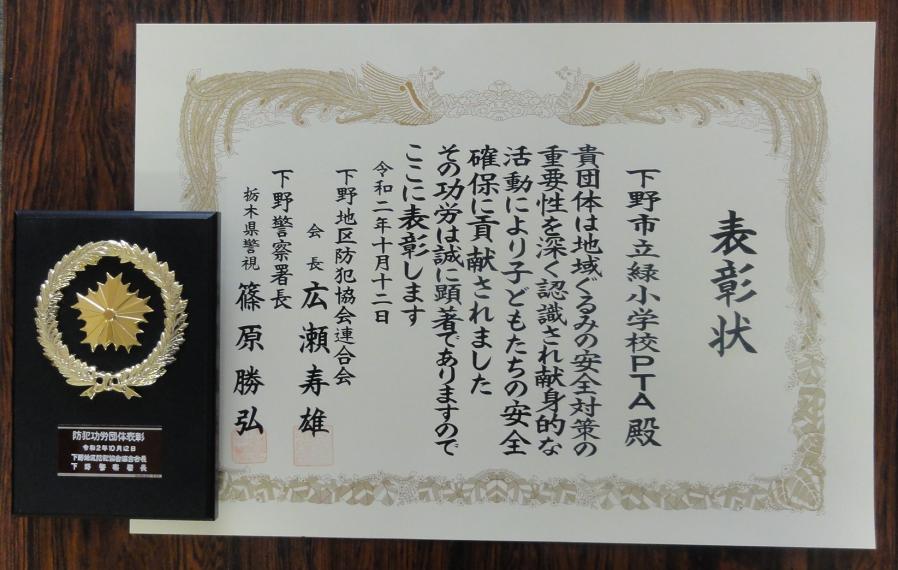 表彰状
下野市立緑小学校PTA殿
貴団体は地域ぐるみの安全対策の
重要性を深く認識され献身的な
活動により子どもたちの安全
確保に貢献されました
その功労は誠に顕著でありますので
ここに表彰します
令和二年十月十二日
下野地区防犯協会連合会
会長 広瀬寿雄
下野警察署長
栃木県警視 篠原勝弘
防犯功労団体表彰
令和2年10月12日
下野地区防犯協会連合会長
下野警察署長